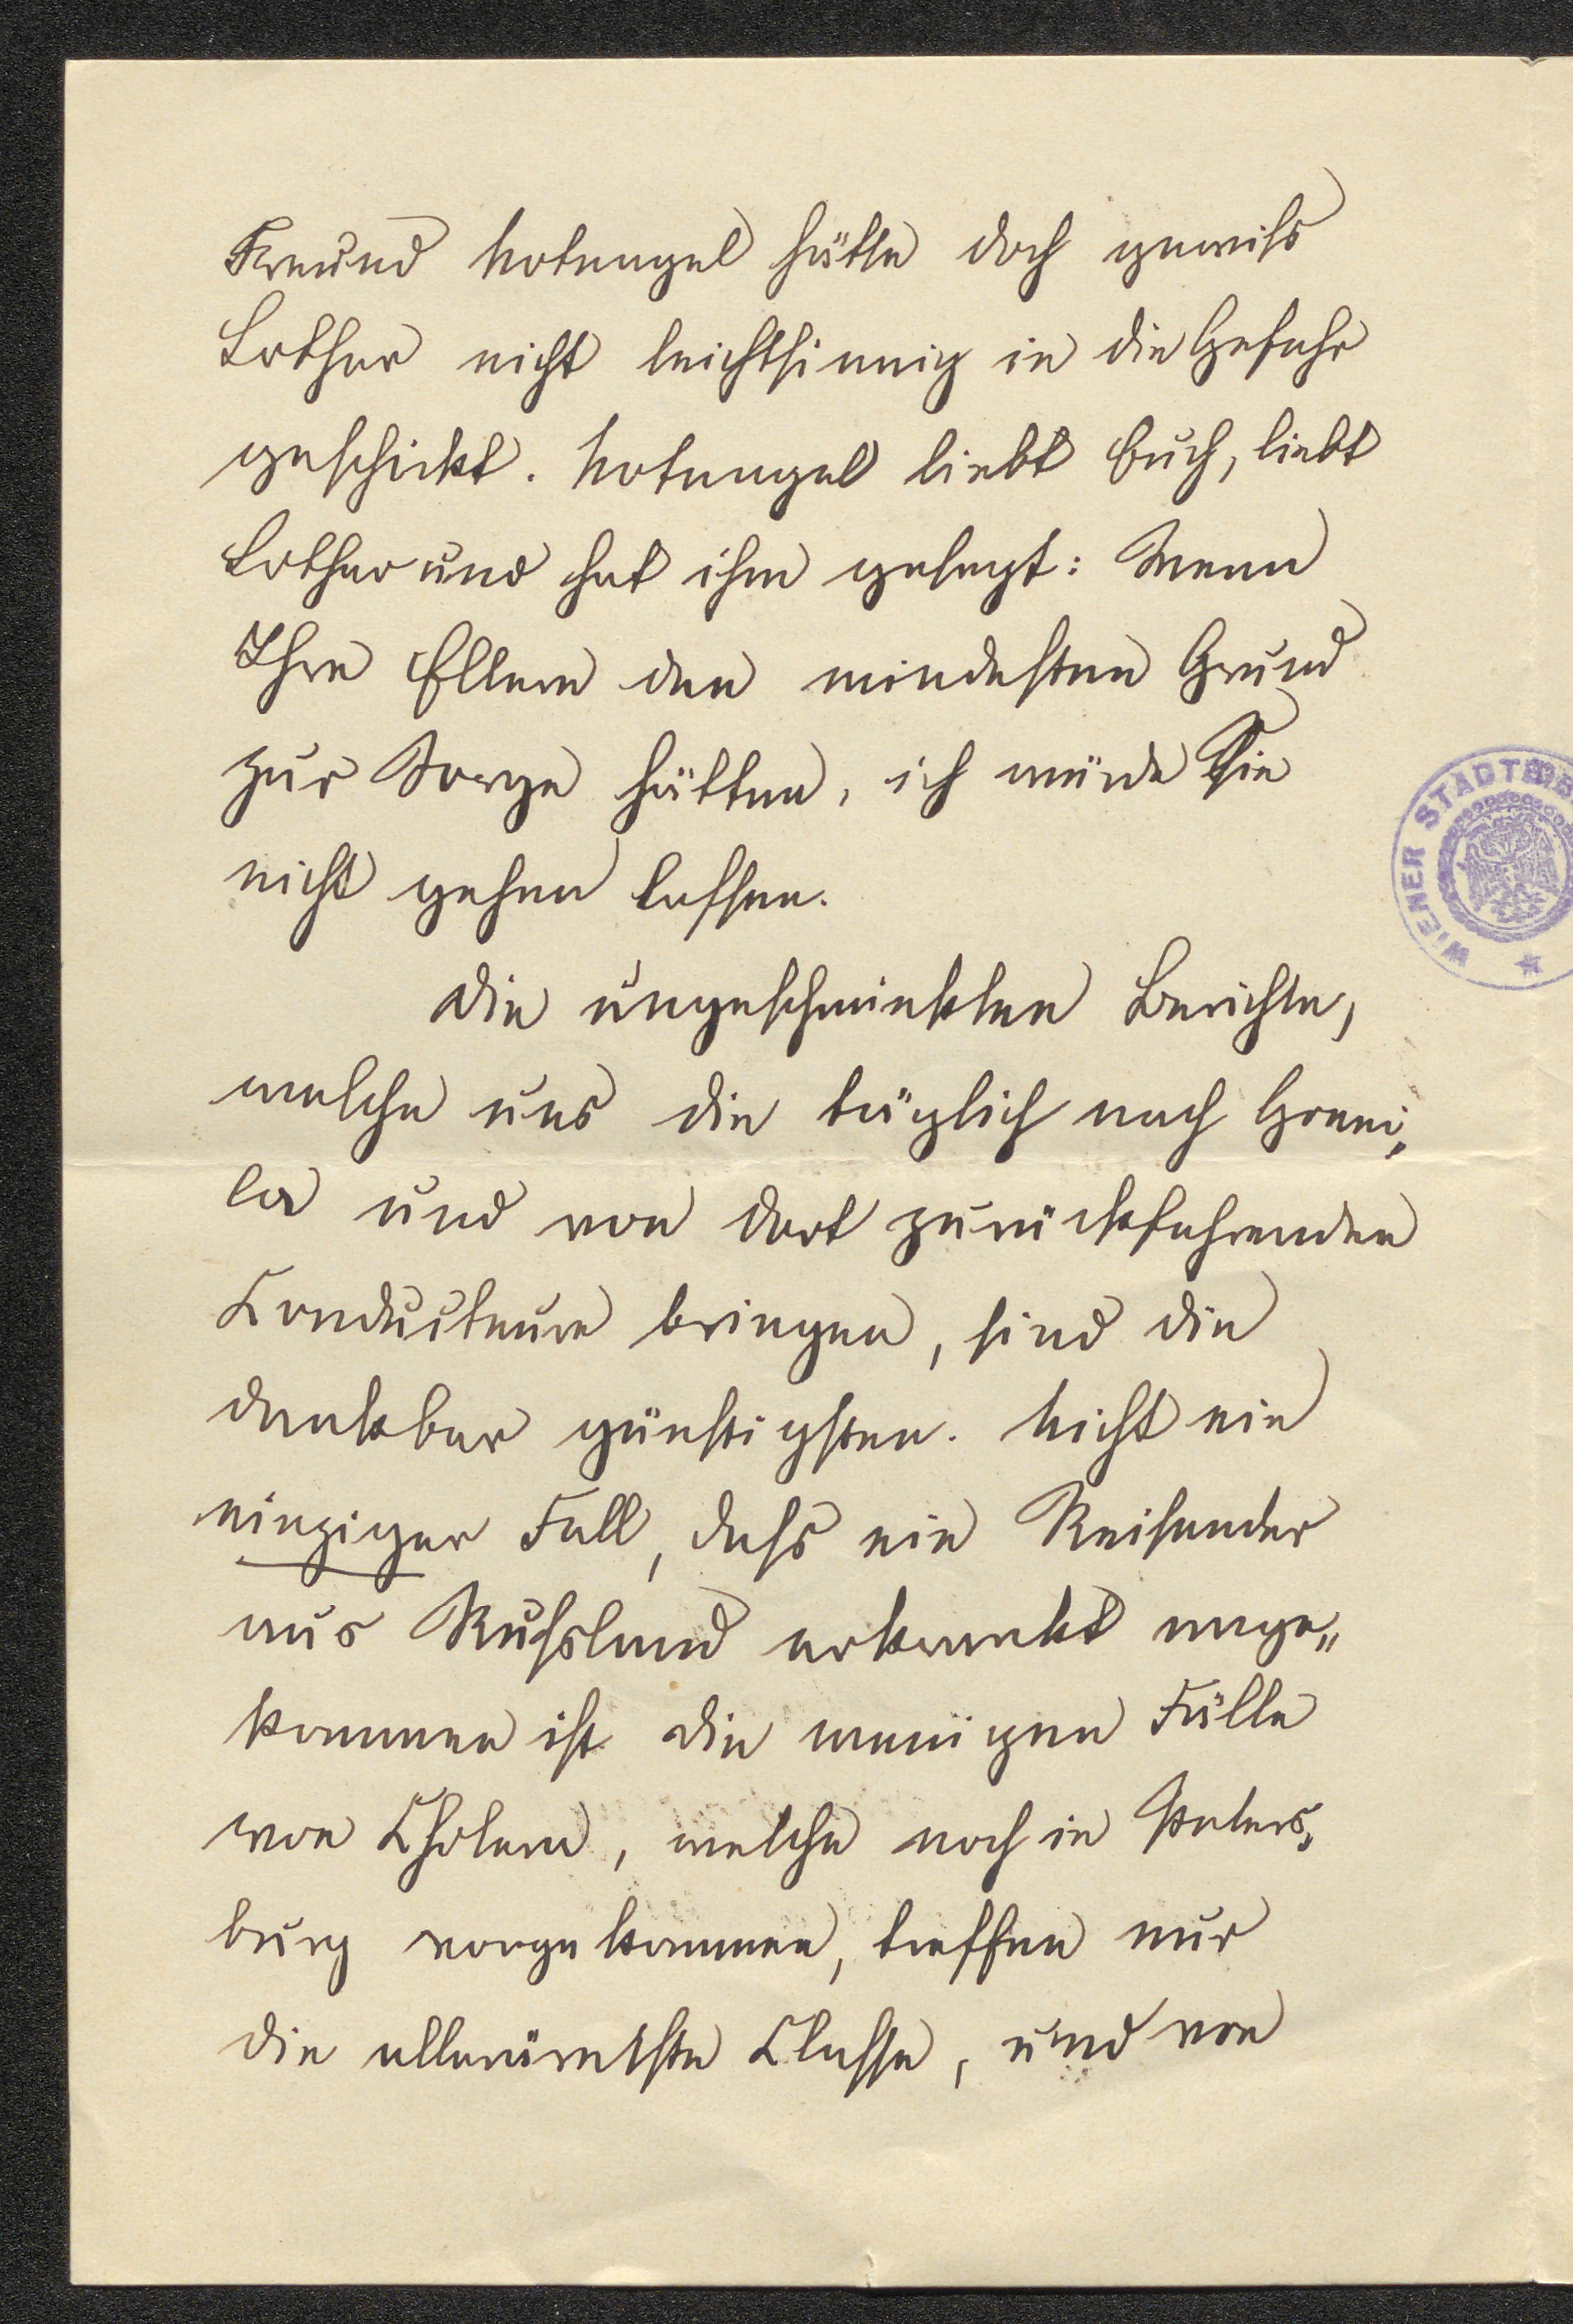 Freund Notnagel hätte doch gewiß
Lothar nicht leichtsinnig in die Gefahr
geschickt. Notnagel liebt Euch, liebt
Lothar und hat ihm gesagt: Wenn
Ihre Eltern den mindesten Grund
zur Sorge hätten, ich würde Sie
nicht gehen lassen.
Die ungeschminkten Berichte,
welche uns die täglich nach Grani„
ca und von dort zurückfahrenden
Conducteure bringen, sind die
denkbar günstigsten. Nicht ein
einziger Fall, daß ein Reisender
aus Rußland erkrankt ange„
kommen ist. Die wenigen Fälle
von Cholera, welche noch in Peters„
burg vorgekommen, treffen nur
die allerärmste Classe, und von
WIENER STADT